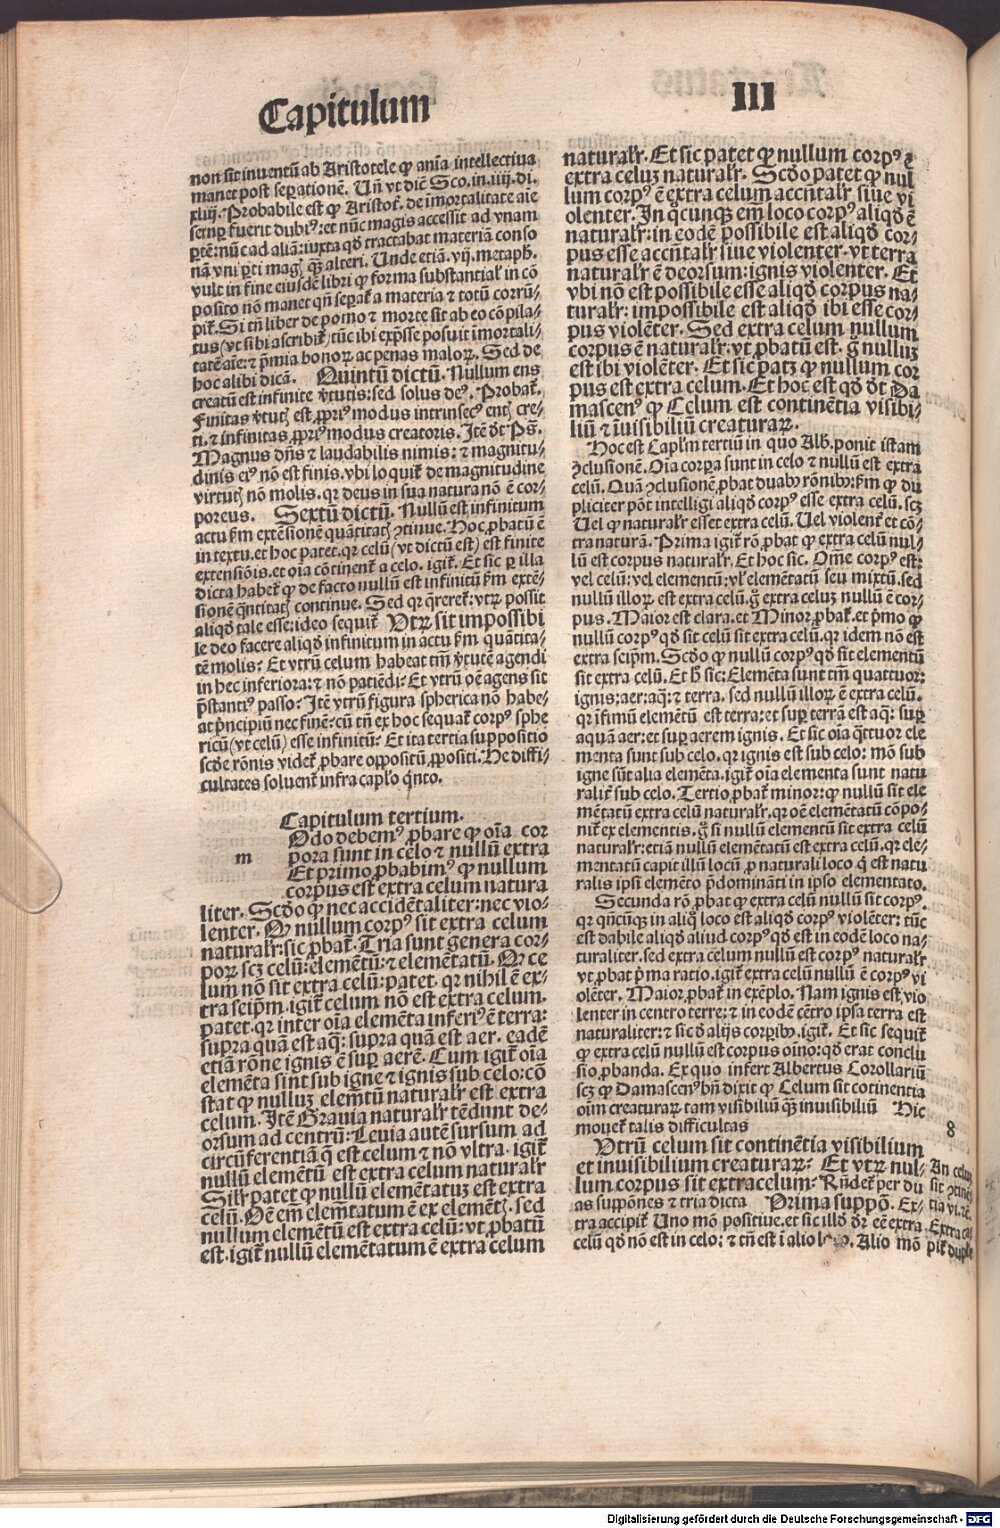 Capitulum III
non sit inventũ ab Aristotele ꝙ anĩa intellectiva
manet post seꝑationẽ. Uñ vt diẽ Sco. in. iiij. di.
xliij. Probabile est ꝙ Aristot̃. de imortalitate aĩe
semꝑ fuerit dubiꝰ: et nũc magis accessit ad vnam
ꝑtẽ: nũc ad aliã: iuxta qđ tractabat materiã conso
nã vni ꝑti magꝭ qᷓꝫ alteri. Unde etiã. vij. metapħ.
vult in fine eiusdẽ libri ꝙ forma substantiał in cõ
posito nõ manet qñ seꝑat̃ a materia ⁊ totũ corrũ⸗
pit̃. Si tñ liber de pomo ⁊ morte sit ab eo cõpila⸗
tus (vt sibi ascribit̃) tũc ibi exp̃sse posuit imortali⸗
tatẽ aĩe: ⁊ p̃mia bonoꝝ ac penas maloꝝ. Sed de
hoc alibi dicã. Quintũ dictũ. Nullum ens
creatũ est infinite v̾tutis: sed solus deꝰ. Probat̃.
Finitas v̾tutꝭ est ꝓpriꝰ modus intrinsecꝰ entꝭ cre⸗
ti. ⁊ infinitas ꝓpriꝰ modus creatoris. Itẽ d̃t Ps̃.
Magnus dñs ⁊ laudabilis nimis: ⁊ magnitu⸗
dinis eiꝰ nõ est finis. vbi loquit̃ de magnitudine
virtutꝭ nõ molis. qꝛ deus in sua natura nõ ẽ cor⸗
poreus. Sextũ dictũ. Nullũ est infinitum
actu ẜm extẽsionẽ quãtitatꝭ ꝯtinue. Hoc ꝓbatũ ẽ
in textu. et hoc patet. qꝛ celũ (vt dictũ est) est finite
extensiõis. et oĩa cõtinent̃ a celo. igit̃. Et sic ꝑ illa
dicta habet̃ ꝙ de facto nullũ est infinitũ ẜm extẽ⸗
sionẽ qᷓntitatꝭ continue. Sed qꝛ q̃reret̃: vtꝝ possit
aliqđ tale esse: ideo sequit̃ Utꝝ sit impossibi
le deo facere aliqđ infinitum in actu ẜm quãtita⸗
tẽ molis? Et vtrũ celum habeat tm̃ v̾tutẽ agendi
in hec inferiora: ⁊ nõ patiẽdi? Et vtrũ oẽ agens sit
p̃stantiꝰ passo? Itẽ vtrũ figura spherica nõ habe⸗
at p̾ncipiũ nec finẽ: cũ tñ ex hoc sequat̃ corpꝰ sphe
ricũ (vt celũ) esse infinitũ? Et ita tertia suppositio
scđe rõnis videt̃ ꝓbare oppositũ ꝓpositi. He diffi⸗
cultates soluent̃ infra capło q̾nto.
Capitulum tertium.
m Odo debemꝰ ꝓbare ꝙ oĩa cor
pora sunt in celo ⁊ nullũ extra
Et primo ꝓbabimꝰ ꝙ nullum
corpus est extra celum natura
liter. Scđo ꝙ nec accidẽtaliter: nec vio⸗
lenter. Ꝙ nullum corpꝰ sit extra celum
naturalr̃: sic ꝓbat̃. Tria sunt genera cor⸗
poꝝ scꝫ celũ: elemẽtũ: ⁊ elemẽtatũ. Ꝙ ce
lum nõ sit extra celũ: patet. qꝛ nihil ẽ ex⸗
tra seip̃m. igit̃ celum nõ est extra celum.
patet. qꝛ inter oĩa elemẽta inferiꝰ ẽ terra:
supra quã est aq̃: supra quã est aer. eadẽ
etiã rõne ignis ẽ suꝑ aerẽ. Cum igit̃ oĩa
elemẽta sint sub igne ⁊ ignis sub celo: cõ
stat ꝙ nulluꝫ elem̃tũ naturalr̃ est extra
celum. Itẽ Gravia naturalr̃ tẽdunt de⸗
orsum ad centrũ: Levia autẽ sursum ad
circũferentiã q̃ est celum ⁊ nõ vltra. igit̃
nullũ elemẽtũ est extra celum naturalr̃
Silr̃ patet ꝙ nullũ elemẽtatuꝫ est extra
celũ. Oẽ em̃ elem̃tatum ẽ ex elemẽtꝭ. sed
nullum elemẽtũ est extra celũ: vt ꝓbatũ
est. igit̃ nullũ elemẽtatum ẽ extra celum
naturalr̃. Et sic patet ꝙ nullum corpꝰ ẽ
extra celuꝫ naturalr̃. Scđo patet ꝙ nul
lum corpꝰ ẽ extra celum accñtalr̃ siue vi
olenter. In q̃cunqꝫ em̃ loco corpꝰ aliqđ ẽ
naturalr̃: in eodẽ possibile est aliqđ cor⸗
pus esse accñtalr̃ siue violenter. vt terra
naturalr̃ ẽ deorsum: ignis violenter. Et
vbi nõ est possibile esse aliqđ corpus na⸗
turalr̃: impossibile est aliqđ ibi esse cor⸗
pus violẽter. Sed extra celum nullum
corpus ẽ naturalr̃. vt ꝓbatũ est. g̃ nulluꝫ
est ibi violẽter. Et sic patꝫ ꝙ nullum cor
pus est extra celum. Et hoc est qđ d̃t Da
mascenꝰ ꝙ Celum est continẽtia visibi⸗
liũ ⁊ ĩuisibiliũ creaturaꝝ.
Hoc est Capłm tertiũ in quo Alb̃. ponit istam
ꝯclusionẽ. Oĩa corꝑa sunt in celo ⁊ nullũ est extra
celũ. Quã ꝯclusionẽ ꝓbat duabꝫ rõnibꝫ: ẜm ꝙ du
pliciter põt intelligi aliqđ corpꝰ esse extra celũ. scꝫ
Uel ꝙ naturalr̃ esset extra celũ. Uel violent̃ et cõ⸗
tra naturã. Prima igit̃ rõ ꝓbat ꝙ extra celũ nul⸗
lũ est corpus naturalr̃. Et hoc sic. Om̃e corpꝰ est:
vel celũ: vel elementũ: vl̃ elemẽtatũ seu mixtũ. sed
nullũ illoꝝ est extra celũ. g̃ extra celuꝫ nullũ ẽ cor⸗
pus. Maior est clara. et Minor ꝓbat̃. et p̾mo ꝙ
nullũ corpꝰ qđ sit celũ sit extra celũ. qꝛ idem nõ est
extra seip̃m. Scđo ꝙ nullũ corpꝰ qđ sit elementũ
sit extra celũ. Et ħ sic: Elemẽta sunt tm̃ quattuor:
ignis: aer: aq̃: ⁊ terra. sed nullũ illoꝝ ẽ extra celũ.
qꝛ ĩfimũ elemẽtũ est terra: et suꝑ terrã est aq̃: suꝑ
aquã aer: et suꝑ aerem ignis. Et sic oĩa q̃ttuor ele
menta sunt sub celo. qꝛ ignis est sub celo: mõ sub
igne sũt alia elemẽta. igit̃ oĩa elementa sunt natu
ralit̃ sub celo. Tertio ꝓbat̃ minor: ꝙ nullũ sit ele
mẽtatũ extra celũ naturalr̃. qꝛ oẽ elemẽtatũ cõpo⸗
nit̃ ex elementis. g̃ si nullũ elementũ sit extra celũ
naturalr̃: etiã nullũ elemẽtatũ est extra celũ. qꝛ ele⸗
mẽtatũ capit illũ locũ ꝓ naturali loco q̾ est natu
ralis ipsi elemẽto p̃dominãti in ipso elementato.
Secunda rõ ꝓbat ꝙ extra celũ nullũ sit corpꝰ.
qꝛ qñcũqꝫ in aliq̾ loco est aliqđ corpꝰ violẽter: tũc
est dabile aliqđ aliud corpꝰ qđ est in eodẽ loco na⸗
turaliter. sed extra celum nullũ est corpꝰ naturalr̃
vt ꝓbat p̾ma ratio. igit̃ extra celũ nullũ ẽ corpꝰ vi
olẽter. Maior ꝓbat̃ in exẽplo. Nam ignis est vio
lenter in centro terre: ⁊ in eodẽ cẽtro ipsa terra est
naturaliter: ⁊ sic đ alijs corꝑibꝫ. igit̃. Et sic sequit̃
ꝙ extra celũ nullũ est corpus oĩno: qđ erat conclu
sio ꝓbanda. Ex quo infert Albertus Corollariũ
scꝫ ꝙ Damascenꝰ bñ dixit ꝙ Celum sit cotinentia
oĩm creaturaꝝ tam visibiliũ qᷓꝫ inuisibiliũ Hic
mouet̃ talis difficultas
Utrũ celum sit continẽtia visibilium
et inuisibilium creaturaꝝ? Et vtꝝ nul⸗
lum corpus sit extra celum? Rñdet̃ per du
as suppõnes ⁊ tria dicta Prima suppõ. Ex⸗
tra accipit̃ Uno mõ positiue. et sic illđ dr̃ eẽ extra
celũ qđ nõ est in celo: ⁊ tñ est ĩ alio . Alio mõ
8
An celum
sit ꝯtinẽ
tia vi. ⁊c̃.
Extra ca
pit̃ duplr̃
Digitalisierung gefördert durch die Deutsche Forschungsgemeinschaft - DFG